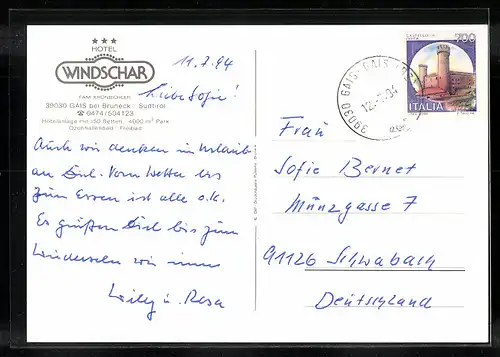 HOTEL
WINDSCHAR
FAM. KRONBICHLER
39030 GAIS bei Bruneck · Südtirol
☎ 0474/504123
Hotelanlage mit 150 Betten, 4000 m² Park
Hallenbad · Freibad
11.7.94
Liebe Sofie!
Auch wir denken im Urlaub
an Dich. Vom Wetter bis
zum Essen ist alle o.k.
Es grüßen Dich bis zum
Wiedersehn wie immer
Willy u. Rosa
39030 GAIS
12.
94
700
ITALIA
Frau
Sofie Bernet
Münzgasse 7
91126 Schwabach
Deutschland